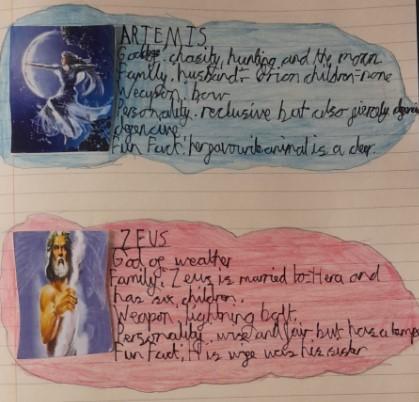 ARTEMIS
chasity, hunting and the moon
Family, husband- orion children-none
Weapon, bow
Personality. reclusive but also
Fun Fact: her favourite animal is a
ZEUS
God of weather
Family, Zeus is married to Hera and
has six, children.
Weapon, lightning bolt.
Personality, wise and fair but has a
Fun Fact, His wife was his sister